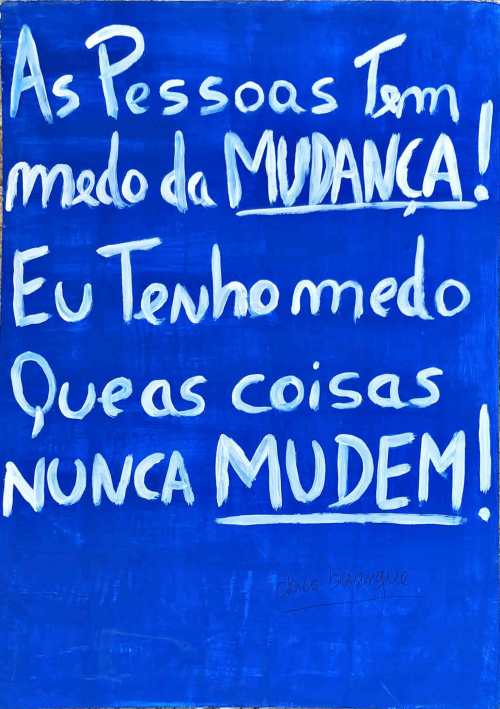 As Pessoas Tem
medo da MUDANÇA!
Eu Tenho medo
Que as coisas
NUNCA MUDEM!
chico buarque